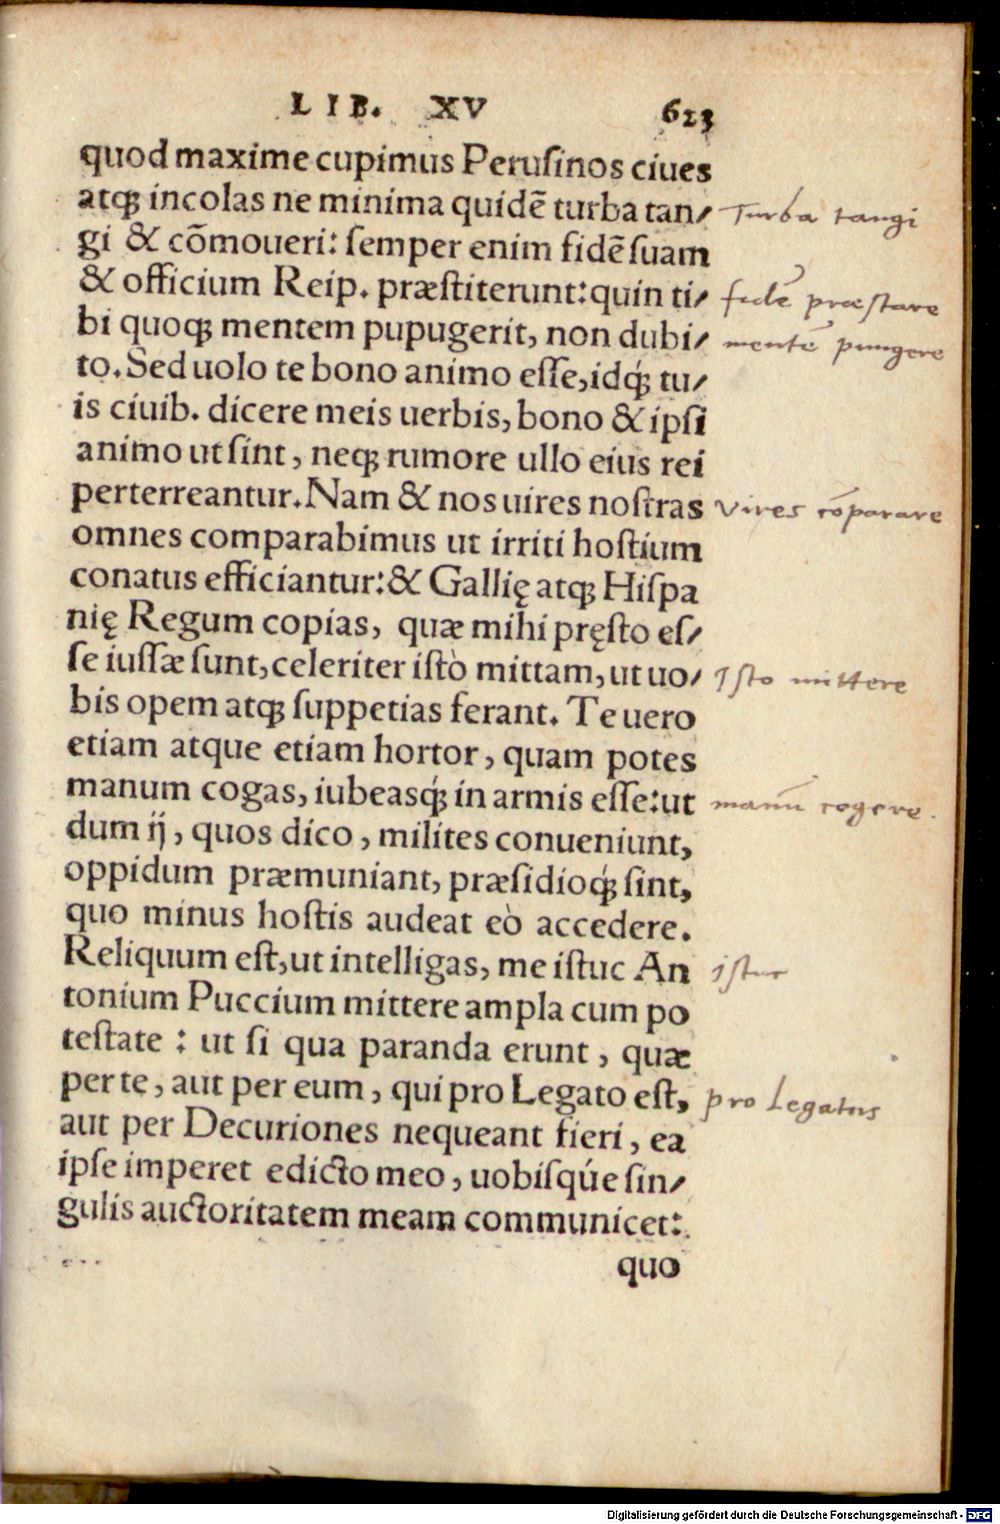 LIB. XV 623
quod maxime cupimus Perusinos ciues
atq; incolas ne minima quidē turba tan/ Turba tangi
gi & cōmoueri: semper enim fidē suam
& officium Reip. præstiterunt: quin ti/ fidē præstare
bi quoq; mentem pupugerit, non dubi/ mentē pungere
to. Sed uolo te bono animo esse, idq́; tu/
is ciuib. dicere meis uerbis, bono & ipsi
animo ut sint, neq; rumore ullo eius rei
perterreantur. Nam & nos uires nostras vires cōparare
omnes comparabimus ut irriti hostium
conatus efficiantur: & Gallię atq; Hispa
nię Regum copias, quæ mihi pręsto es/
se iussæ sunt, celeriter istò mittam, ut uo/ Isto mittere
bis opem atq; suppetias ferant. Te uero
etiam atque etiam hortor, quam potes
manum cogas, iubeasq́; in armis esse: ut manū cogere.
dum ij, quos dico, milites conueniunt,
oppidum præmuniant, præsidioq́; sint,
quo minus hostis audeat eò accedere.
Reliquum est, ut intelligas, me istuc An istuc
tonium Puccium mittere ampla cum po
testate : ut si qua paranda erunt, quæ
per te, aut per eum, qui pro Legato est, pro Legatus
aut per Decuriones nequeant fieri, ea
ipse imperet edicto meo, uobisq́ue sin/
gulis auctoritatem meam communicet:
quo
Digitalisierung gefördert durch die Deutsche Forschungsgemeinschaft - DFG